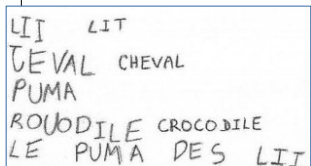 LII LIT
CEVAL CHEVAL
PUMA
ROUODILE CROCODILE
LE PUMA DES LIT